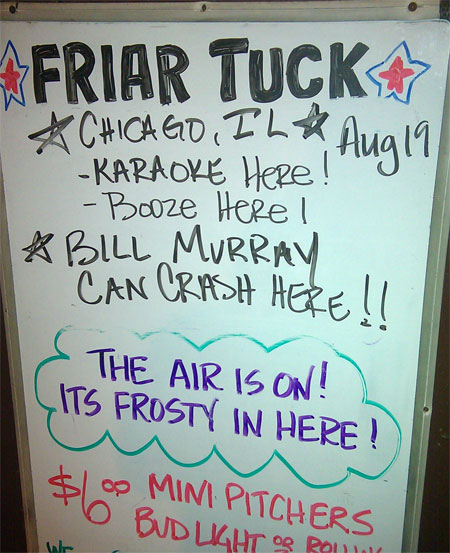 FRIAR TUCK
CHICAGO, IL Aug 19
-KARAOKE HERE!
-BOOZE HERE!
BILL MURRAY
CAN CRASH HERE!!
THE AIR IS ON!
ITS FROSTY IN HERE!
$6⁰⁰ MINI PITCHERS
BUD LIGHT OR